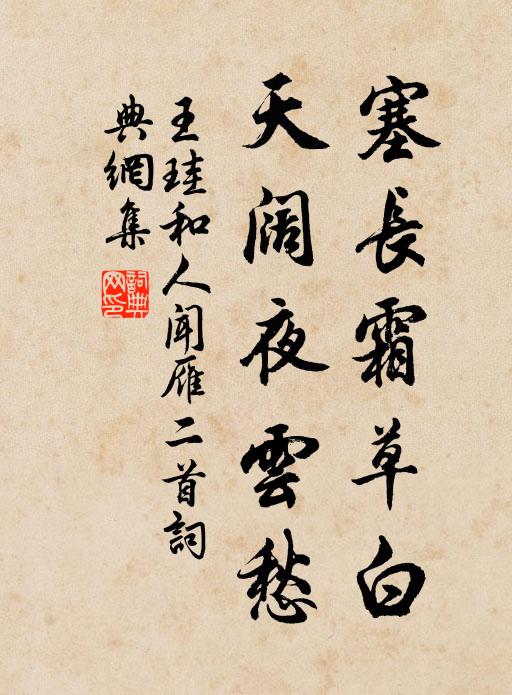 塞長霜草白
天阔夜雲愁
王珪和人闻雁二首詞
典網集
詞典
网印